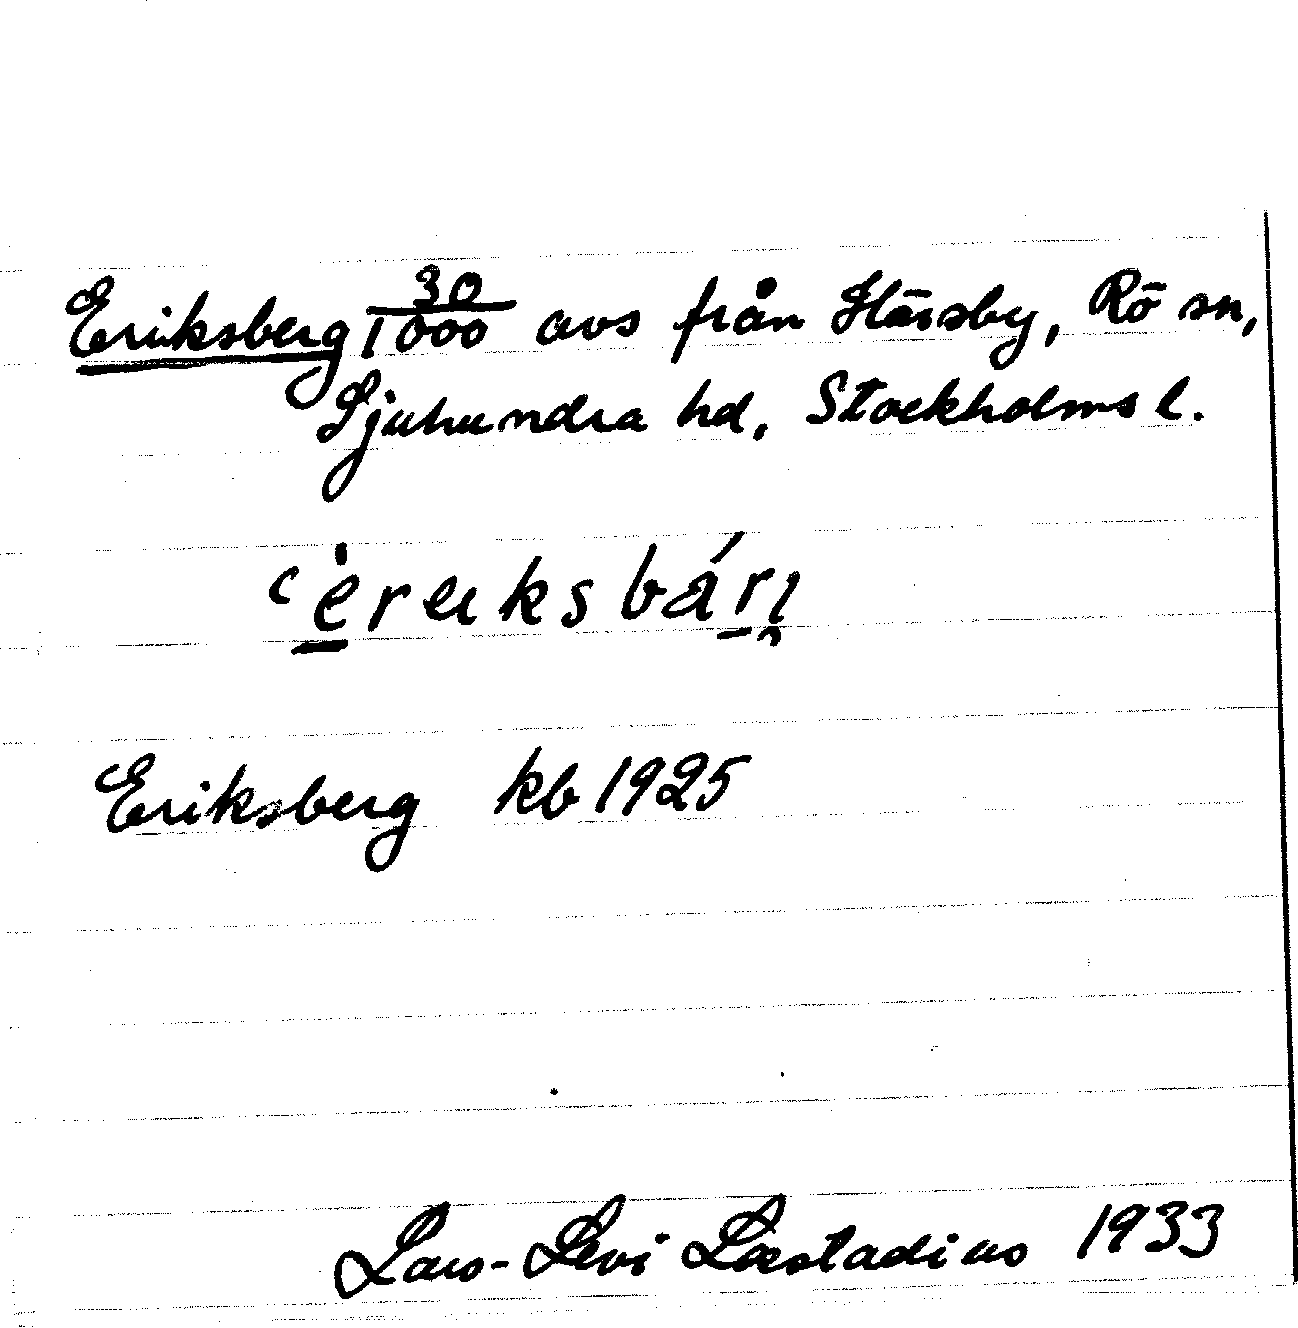 Eriksberg 30/1000 avs från Hårsby, Rö sn,
Sjuhundra hd, Stockholms l.
Eriksberg kb 1925
Lars-Levi Læstadius 1933